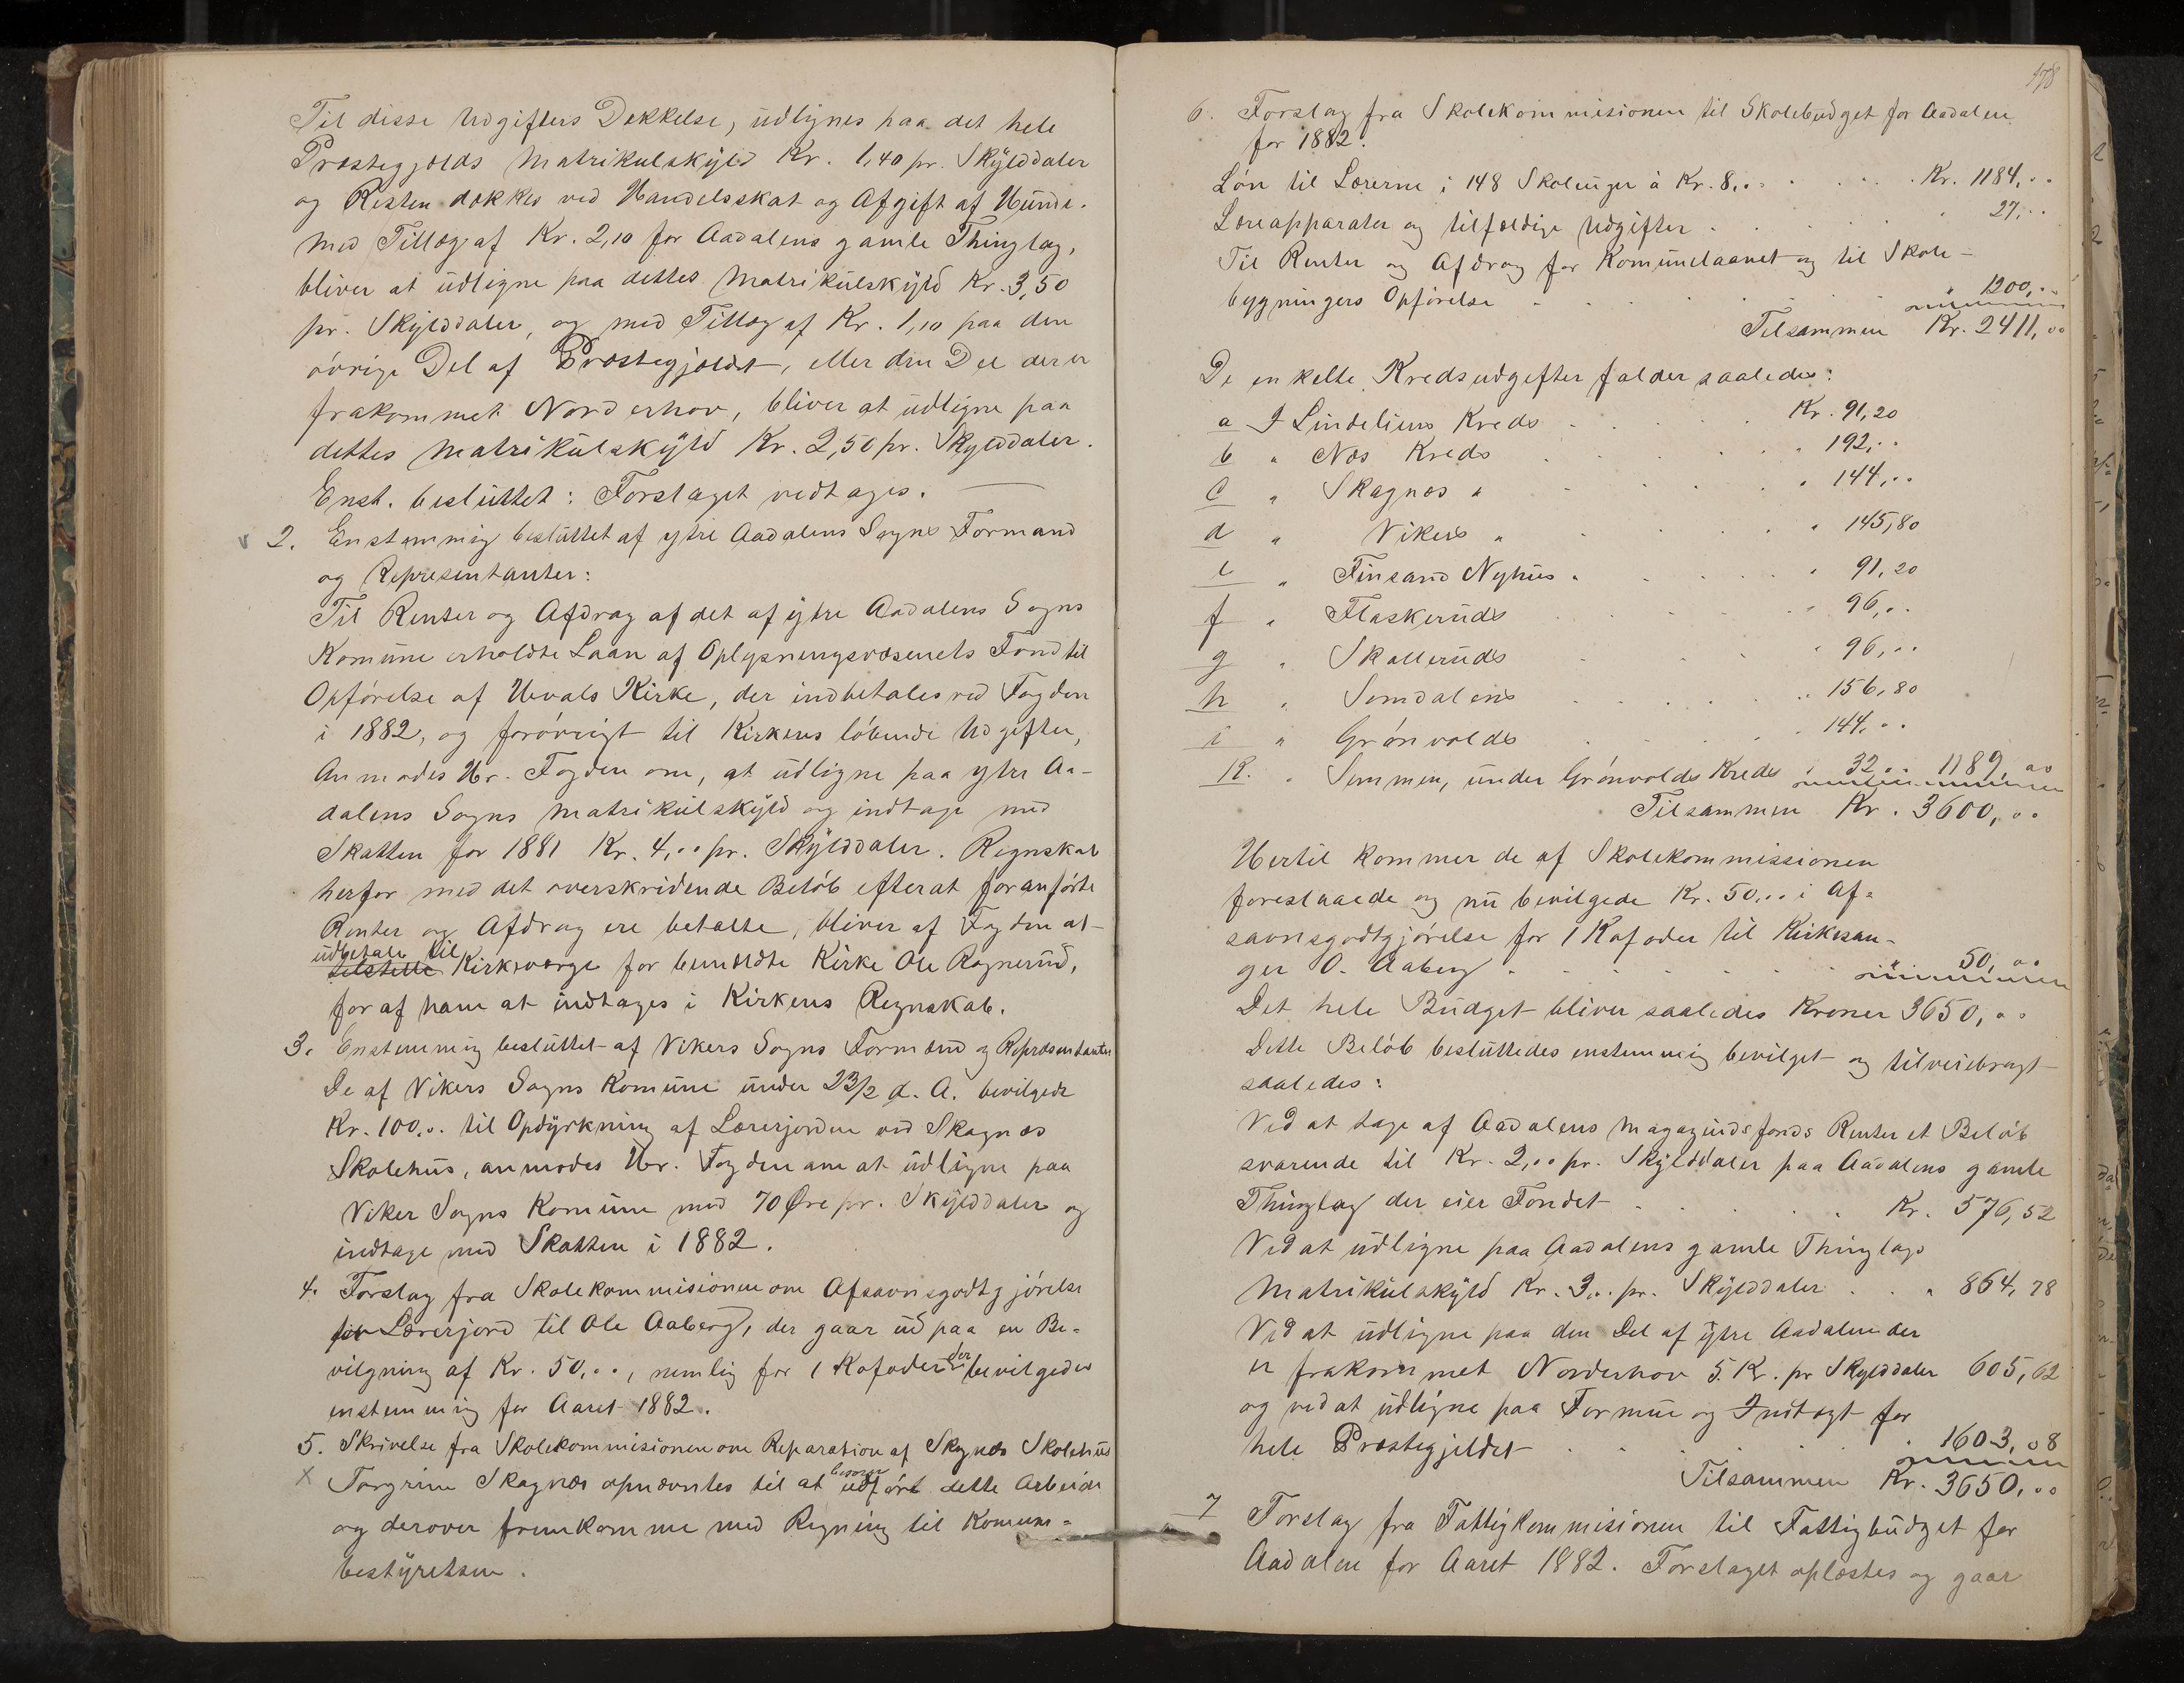 Til disse Udgifters Dækkelse, udlignes paa det hele
Præstegjælds Matrikulskyld Kr. 1,40 pr. Skylddaler
og Resten dækkes ved Handelsskat og Afgift af Hunde.
Med Tillæg af Kr. 2,10 for Aadalens gamle Thinglag,
bliver at udligne paa dettes Matrikulskyld Kr. 3,50
pr. Skylddaler, og med Tillæg af Kr. 1,10 paa den
øvrige Del af Præstegjældet, eller den Del der er
frakommet Norderhov, bliver at udligne paa
dettes Matrikulskyld Kr. 2,50 pr. Skylddaler.
Enst. besluttet: Forslaget vedtages.
2. Enstemmig besluttet af ytre Aadalens Sogns Formænd
og Repræsentanter:
Til Renter og Afdrag af det af ytre Aadalens Sogns
Komune erholdte Laan af Oplysningsvæsenets Fond til
Opførelse af Hvals Kirke, der indbetales ved Fogden
i 1882, og forøvrigt til Kirkens løbende Udgifter,
Anmodes Hr. Fogden om, at udligne paa ytre Aa-
dalens Sogns Matrikulskyld og indtage med
Skatten for 1881 Kr. 4,00 pr. Skylddaler. Regnskab
herfor med det overskridende Beløb efterat foranførte
Renter og Afdrag ere betalte, bliver af Fogden at
udbetale til
tilstille Kirkeværge for bemeldte Kirke Ole Ragnerud,
for af ham at indtages i Kirkens Regnskab.
3. Enstemmig besluttet af Vikers Sogns Formænd og Repræsentanter
De af Vikers Sogns Komune under 23/2 d. A. bevilgede
Kr. 100,00 til Opdyrkning af Lærerjorden ved Skagnæs
Skolehus, anmodes Hr. Fogden om at udligne paa
Viker Sogns Komune med 70 Øre pr. Skylddaler og
indtage med Skatten i 1882.
4. Forslag fra Skolekommisionen om Afsavnsgodtgjørelse
for Lærerjord til Ole Aaberg, der gaar ud paa en Be-
vilgning af Kr. 50,00, nemlig for 1 Kofoder der bevilgedes
enstemmig for Aaret 1882.
5. Skrivelse fra Skolekommisionen om Reparation af Skagnæs Skolehus
X Torgrim Skagnæs opnævntes til at besørge udført dette Arbeide
og derover fremkomme med Regning til Komune-
bestyrelsen.
178
6. Forslag fra Skolekommisionen til Skolebudget for Aadalen
for 1882.
Løn til Lærerne i 148 Skoleuger à Kr. 8,00 Kr. 1184,00
Læreapparater og tilfældige Udgifter " 27,00
Til Renter og Afdrag for Komunelaanet og til Skole-
bygningers Opførelse " 1200,00
Tilsammen Kr. 2411,00
De enkelte Kredsudgifter falder saaledes:
a I Lindeliens Kreds Kr. 91,20
b " Næs Kreds " 192,00
c " Skagnæs " " 144,00
d " Vikers " " 145,80
e " Finsand Nyhus " " 91,20
f " Flaskeruds " 96,00
g " Skolleruds " 96,00
h " Somdalens " 156,80
i " Grønvolds " 144,00
k. " Semmen, under Grønvolds Kreds " 32,00 1189,00
Tilsammen Kr. 3600,00
Hertil kommer de af Skolekommissionen
foreslaaede og nu bevilgede Kr. 50,00 i Af-
savnsgodtgjørelse for 1 Kofoder til Kirkesan-
ger O. Aaberg " 50,00
Det hele Budget bliver saaledes Kroner 3650,00
Dette Beløb besluttedes enstemmig bevilget og tilveiebragt
saaledes:
Ved at tage af Aadalens Magazinsfonds Renter et Beløb
svarende til Kr. 2,00 pr. Skylddaler paa Aadalens gamle
Thinglag der eier Fondet Kr. 576,52
Ved at udligne paa Aadalens gamle Thinglags
Matrikulskyld Kr. 3,00 pr. Skylddaler " 864,78
Ved at udligne paa den Del af ytre Aadalen der
er frakommet Norderhov 5 Kr. pr Skylddaler 605,62
og ved at udligne paa Formue og Indtægt for
hele Præstegjeldet " 1603,08
Tilsammen Kr. 3650,00
7 Forslag fra Fattigkommisionen til Fattigbudget for
Aadalen for Aaret 1882. Forslaget oplæstes og gaar